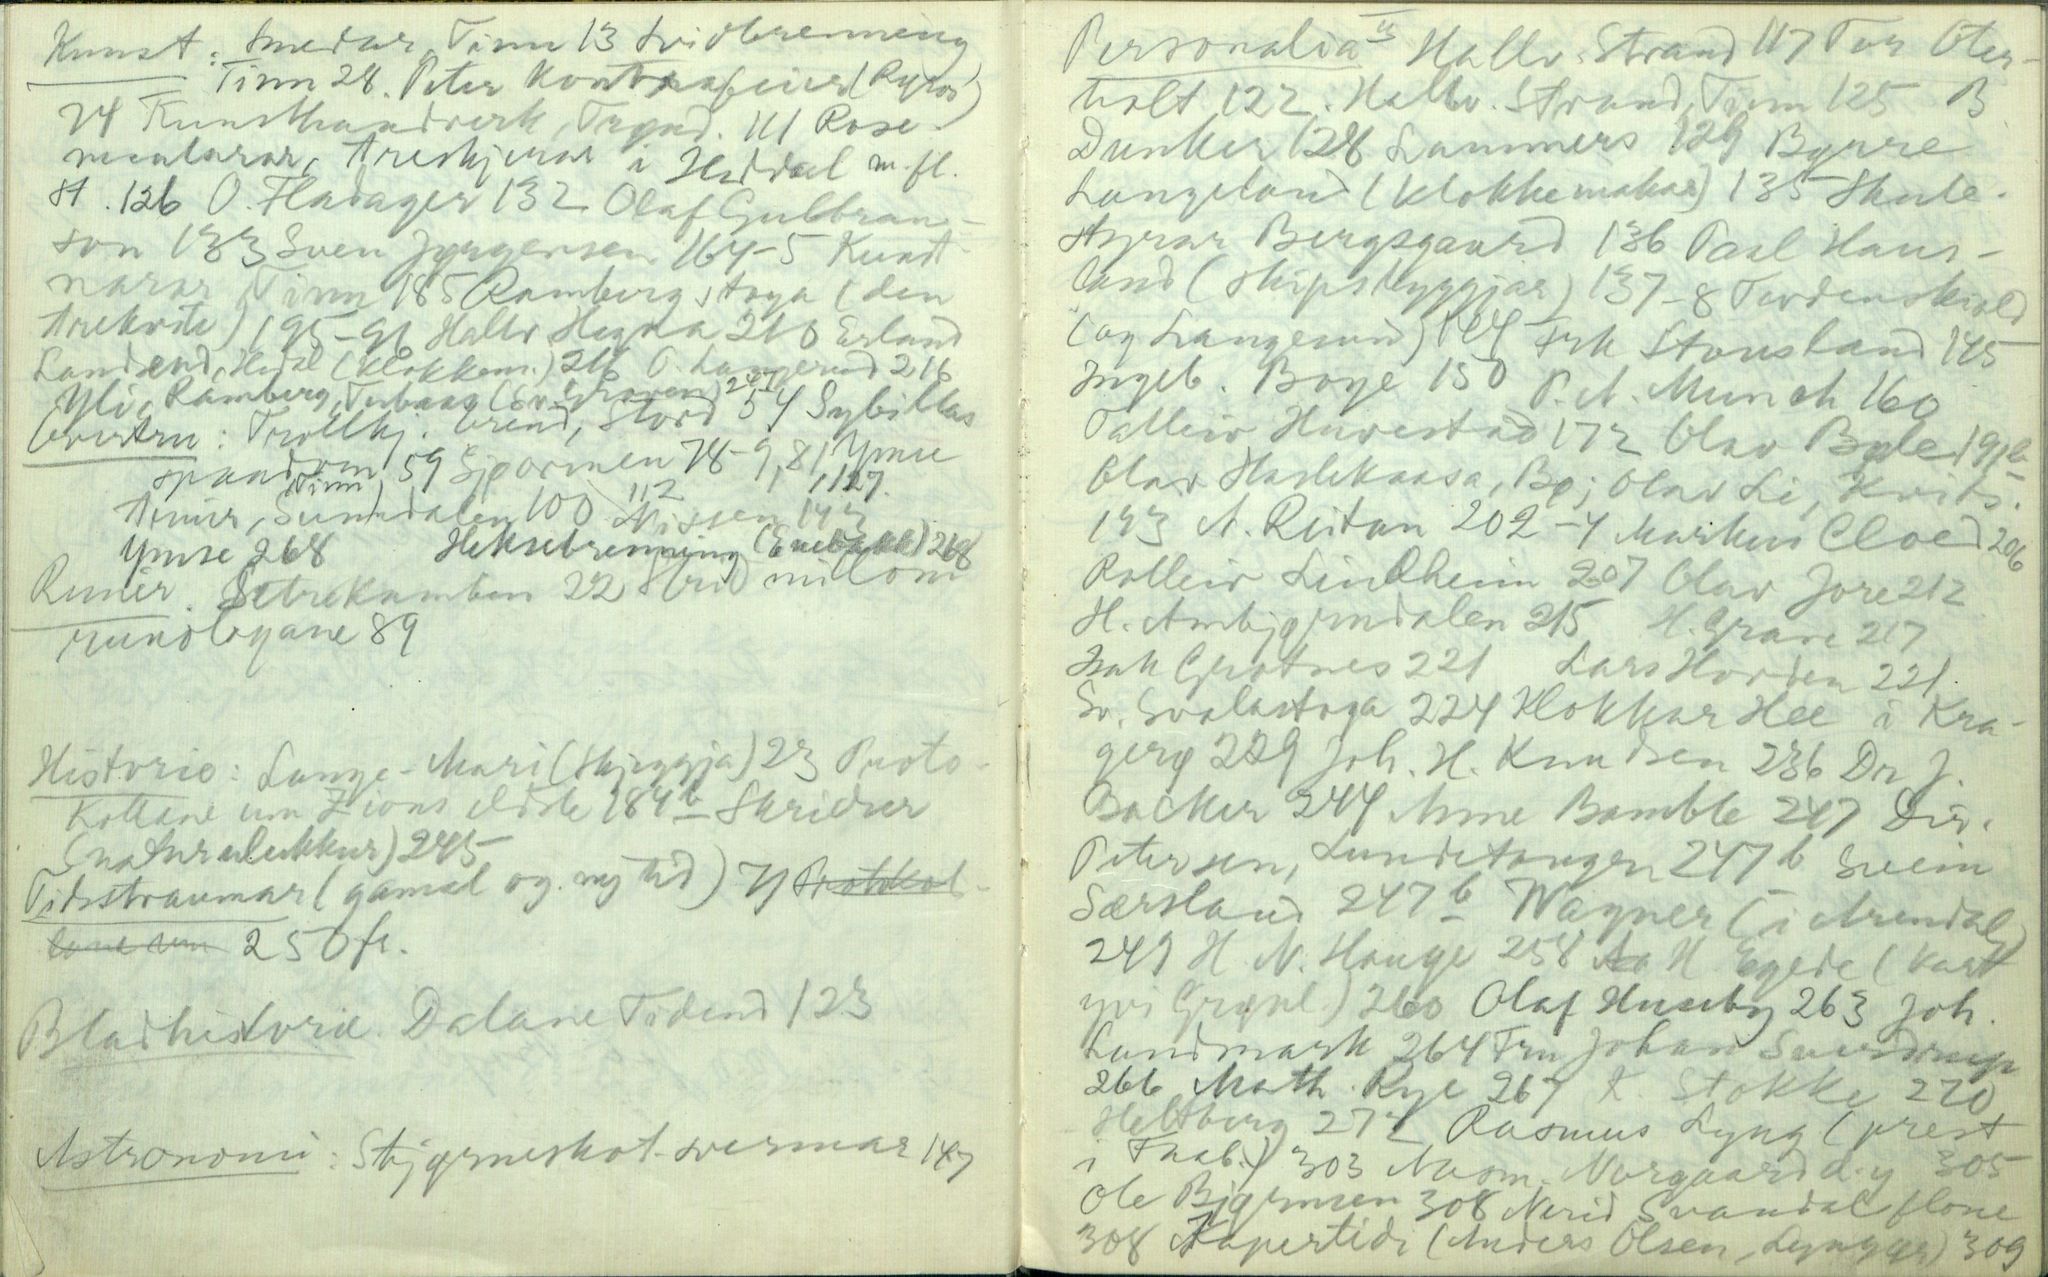 Kunst: Smedar, Tinn 13 Svidbrenning
Tinn 28. Peter Kontrafeier (Ryros)
74 Kunsthandverk, Trynd. 111 Rose-
maalarar, treskjerar i Heddal m. fl.
st. 126 O. Fladager 132 Olaf Gulbran-
son 133 Sven Jørgensen 164-5 Kunst-
narar, Tinn 185 Ramberg stoga (den
) 195-96 Hallv Hegna 210 Erland
Landsend, Hedal (klokkem.) 216 O. Langerud 216
Yli, Ramberg, 241
Overtru: Trollkj. Grend, Stord 54 Sybillas
spaadom 59 Sjøormen 78-9, 81 Ymse
Tinn 112 , 127.
, Sunndalen 100 Nissen 143
Ymse 268 Heksebrenning (Enebakk) 268
Runer. Setrekamben 22 Strid millom
runologane 89
Historie: Lange-Mari (Skjeggja) 23 Proto-
kollane um Zions eldste 184 b Skrider
(naturulukkur) 245
Tidsstraumar (gamal og ny tid) 71 Protokol-
lane um 250 fr.
Bladhistorie. Dalane Tidend 123
Astronomi: Stjerneskot-svermar 147
Personalia II Hallv. Strand 117 Tor Oter-
holt 122. Hallv. Strand, Tinn 125 B
Dunker 128 Lammers 129 Byrre
Langeland (klokkemakar) 135 Skule-
styrar Bergsgaard 136 Paal Haus-
land (skipsbyggjar) 137-8 Tordenskiold
(og Langesund) 144 Frk Stousland 145
Ingeb. Boye 150 P. A. Munch 160
Talleiv Huvestad 172 Olav Bøle 191 b
Olav Haslekaasa, Bø; Olav Li, Kvits.
193 A. Reitan 202-4 Markus Cloed 206
Rolleiv Lindheim 207 Olav Jore 212
H. Ambjørndalen 215 H. Grave 217
Isak Grotnes 221 Lars Horden 221
Sv. Svalastoga 224 Klokkar Hee i Kra-
gerø 229 Joh. H. Knudsen 236 Dr J.
Backer 244 Arne Bamble 247 Dir.
Petersen, Lundetangen 247 b Svein
Særsland 247 b Wagner (i Arendal)
249 H. N. Hauge 258 H. Egede (kart
yvi Grønl.) 260 Olaf Huseby 263 Joh.
Landmark 264 Fru Johan Sverdrup
266 Math. Rye 267 K. Stokke 270
Heltberg 272 Rasmus Lyng (prest
i Fnab.) 303 Norgaard d. y 305
Ole Bjørnsen 308 Svandal flone
308 Kapertidi (Anders Olsen, Lyngør) 309